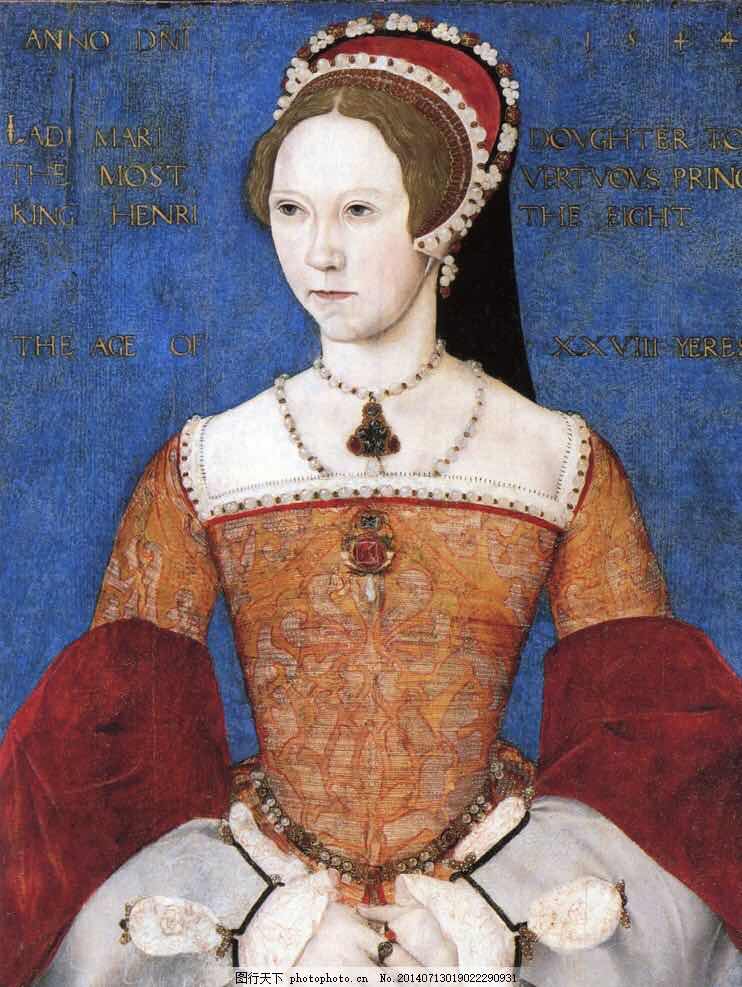 ANNO DNI 1544
LADI MARI DOVGHTER TO
THE MOST VERTVOVS PRINC
KING HENRI THE EIGHT
THE AGE OF XXVIII YERES
图行天下 photophoto.cn No.20140713019022290931